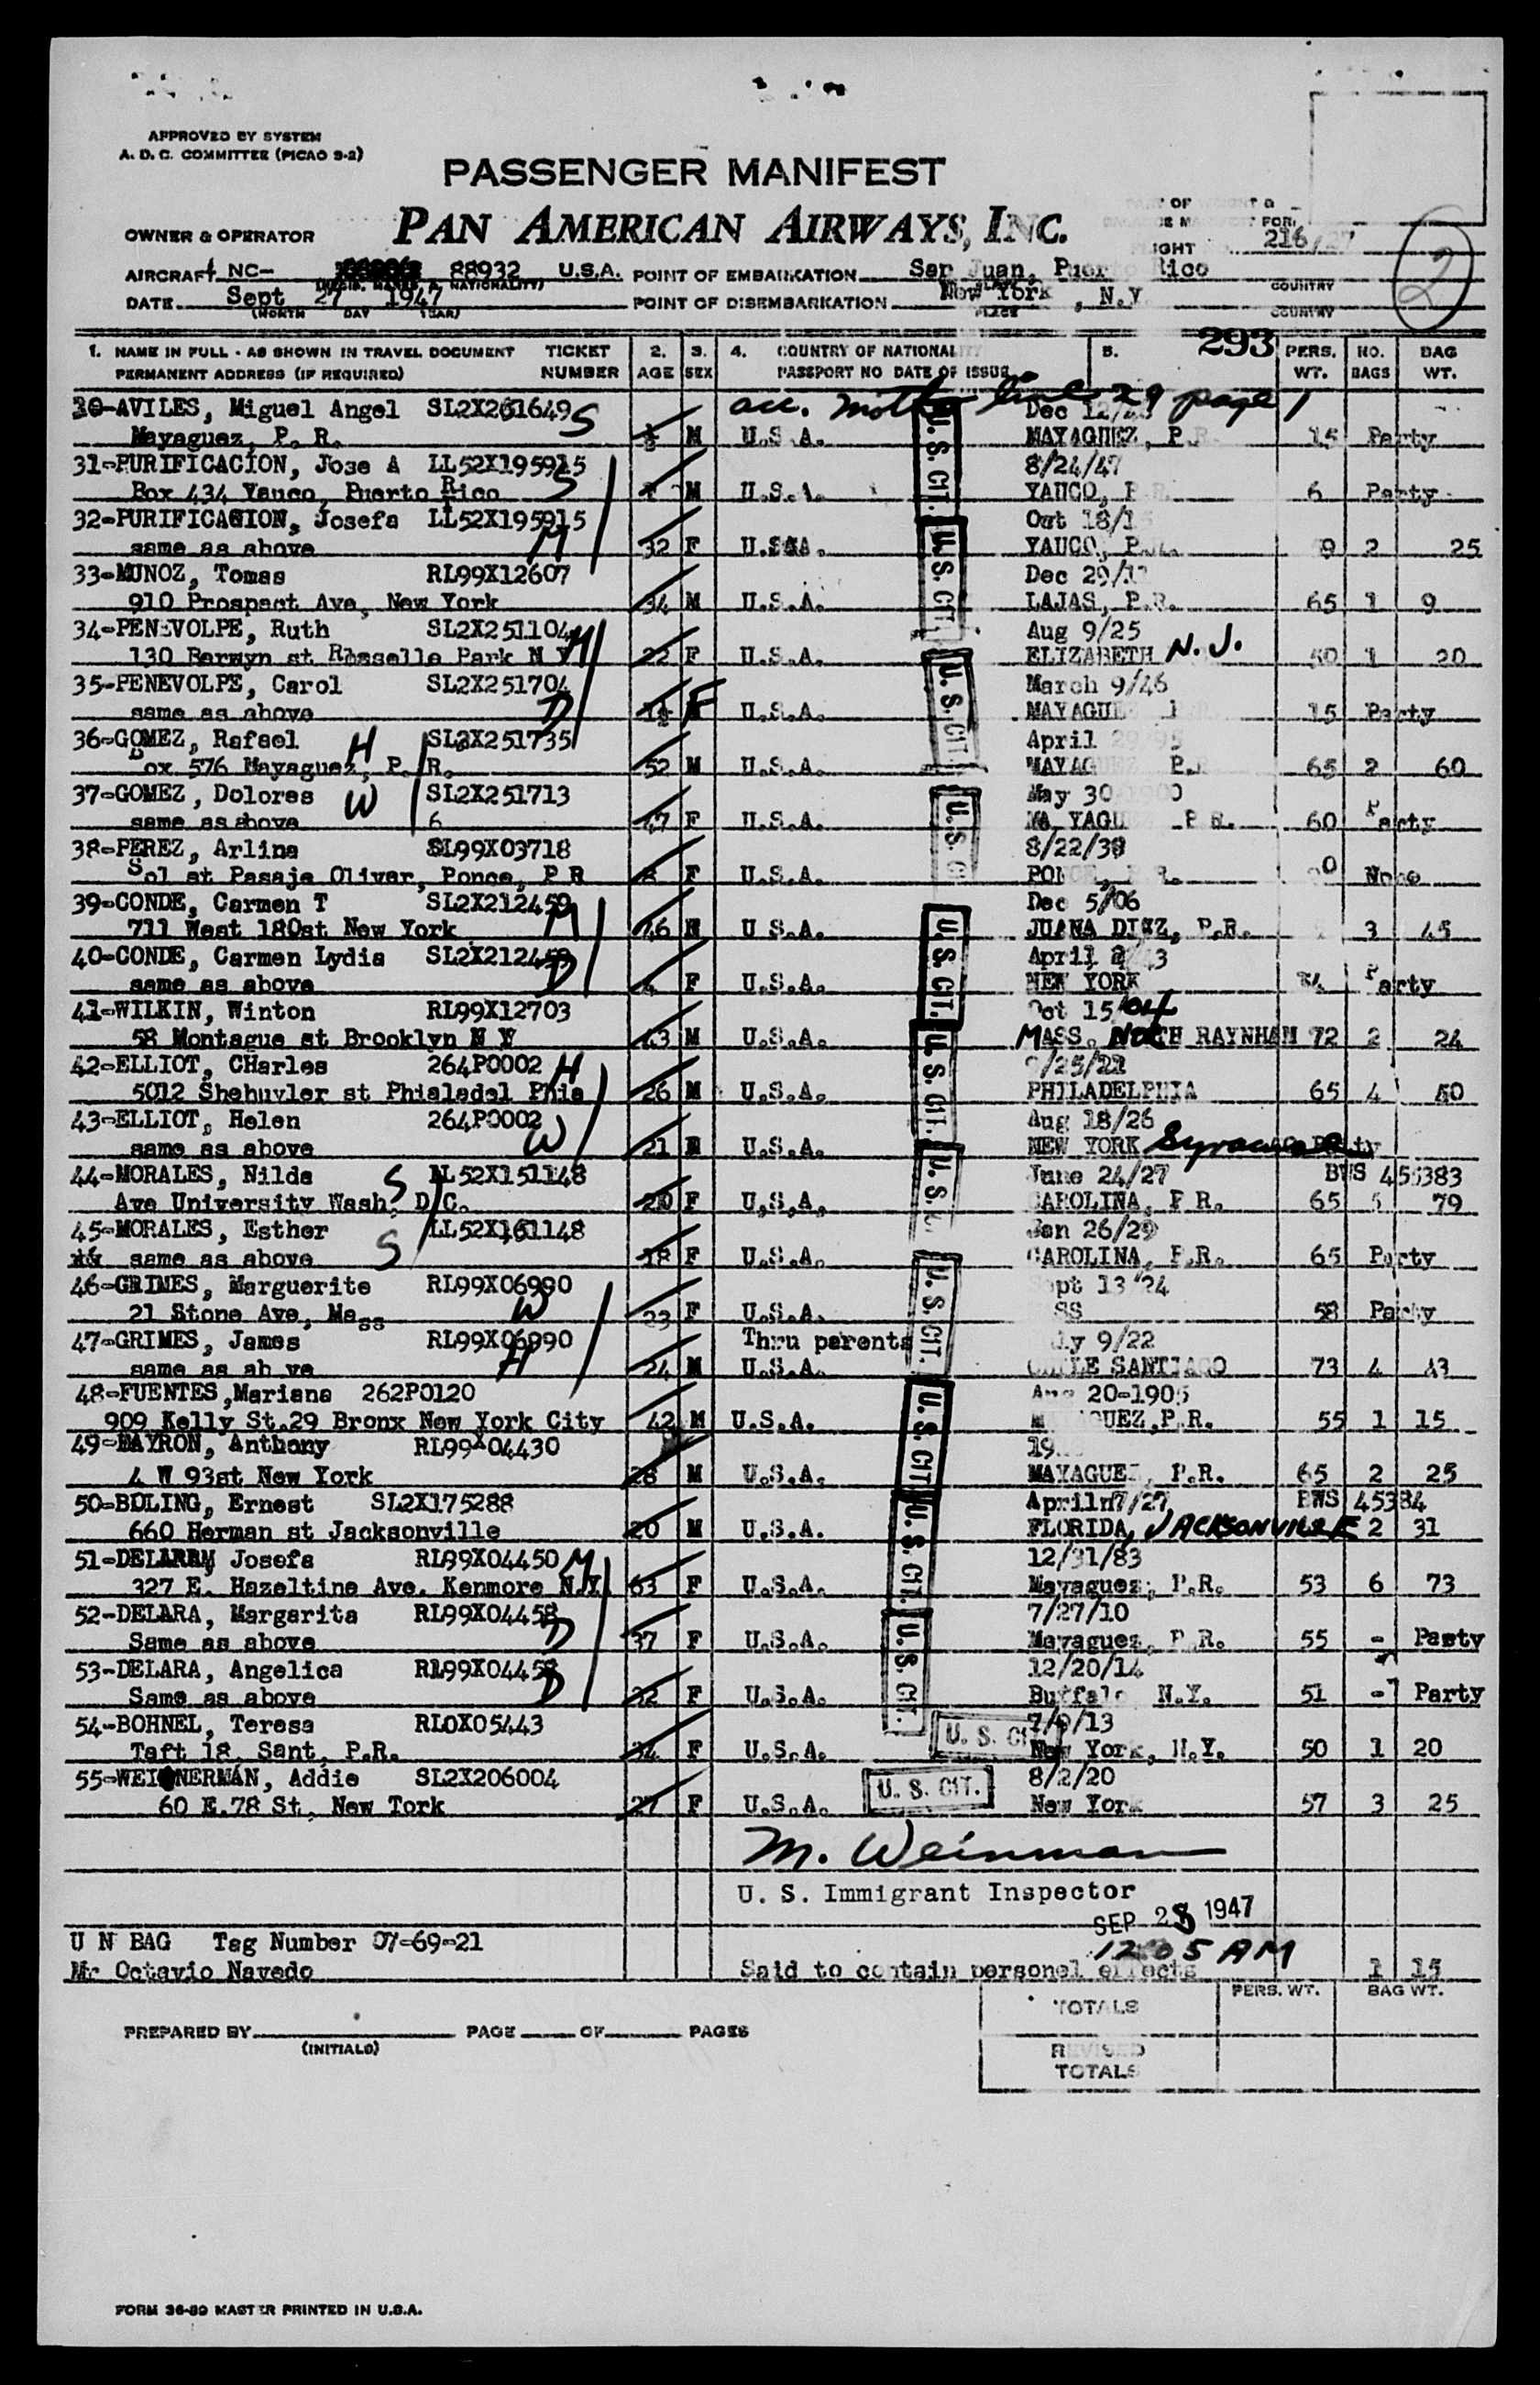 APPROVED BY SYSTEM
A. D. C. COMMITTEE (PICAO 9-2)
PASSENGER MANIFEST
OWNER & OPERATOR PAN AMERICAN AIRWAYS, INC.
FLIGHT 216/27
AIRCRAFT NC- 88932 U.S.A. POINT OF EMBARKATION San Juan, Puerto Rico
COUNTRY
DATE Sept 27 1947 POINT OF DISEMBARKATION New York, N.Y.
(MONTH DAY YEAR) PLACE COUNTRY
2
293
1. NAME IN FULL - AS SHOWN IN TRAVEL DOCUMENT TICKET 2. 3. 4. COUNTRY OF NATIONALITY 5. PERS. NO. BAG
PERMANENT ADDRESS (IF REQUIRED) NUMBER AGE SEX PASSPORT NO DATE OF ISSUE WT. BAGS WT.
acc. mother line 29 page 1
30-AVILES, Miguel Angel SL2X261649 S Dec 12/
Mayaguez, P. R. M U.S.A. MAYAGUEZ, P.R. 15 Party
31-PURIFICACION, Jose A LL52X195915 8/24/47
Box 434 Yauco, Puerto Rico S M U.S.A. YAUCO, P.R. 6 Party
32-PURIFICACION, Josefa LL52X195915 Oct 18/15
same as above M 32 F U.S.A. YAUCO, P.R. 2 25
33-MUNOZ, Tomas RL99X12607 Dec 29/
910 Prospect Ave, New York 34 M U.S.A. LAJAS, P.R. 65 1 9
34-PENEVOLPE, Ruth SL2X251104 Aug 9/25
130 Berwyn st Roselle Park N Y M 22 F U.S.A. ELIZABETH N.J. 50 1 20
35-PENEVOLPE, Carol SL2X251704 March 9/46
same as above D F U.S.A. MAYAGUE 15 Party
36-GOMEZ, Rafael H SL2X251735 April 29 95
Box 576 Mayaguez, P. R. 52 M U.S.A. MAYAGUEZ P.R. 65 2 60
37-GOMEZ, Dolores W SL2X251713 May 30 1900
same as above 6 47 F U.S.A. MAYAGU P.R. 60 Party
38-PEREZ, Arlina SL99X03718 8/22/39
Sol st Pasaje Olivar, Ponce, P R 8 F U.S.A. PONCE, P.R. None
39-CONDE, Carmen T SL2X212459 Dec 5/06
711 West 180st New York M 46 U S.A. JUANA DIAZ, P.R. 3 45
40-CONDE, Carmen Lydia SL2X212459 April 2/43
same as above D 4 F U.S.A. NEW YORK 34 Party
41-WILKIN, Winton RL99X12703 Oct 15/04
58 Montague st Brooklyn N Y 43 M U.S.A. MASS. NORTH RAYNHAM 72 2 24
42-ELLIOT, CHarles 264P0002 H /25/21
5012 Shehuyler st Phialadel Phia 26 M U.S.A. PHILADELPHIA 65 4 50
43-ELLIOT, Helen 264P0002 Aug 18/26
same as above W 21 U.S.A. NEW YORK Syracuse Party
44-MORALES, Nilda S LL52X151148 June 24/27 BWS 455383
Ave University Wash, D C. 20 F U,S,A, CAROLINA, P R. 65 5 79
45-MORALES, Esther LL52X161148 Jan 26/29
same as above S 18 F U.S.A. CAROLINA, P.R. 65 Party
46-GRIMES, Marguerite RL99X06990 Sept 13 24
21 Stone Ave, Mass W 23 F U.S.A. SS 58 Party
47-GRIMES, James RL99X06990 Thru parents July 9/22
same as ab ve H 24 M U.S.A. CHILE SANTIAGO 73 4 43
48-FUENTES,Mariana 262P0120 Aug 20-1905
909 Kelly St.29 Bronx New York City 42 M U.S.A. MAYAGUEZ,P.R. 55 1 15
49-BAYRON, Anthony RL99X04430 19
4 W 93st New York 28 M U.S.A. MAYAGUEZ, P.R. 65 2 25
50-BOLING, Ernest SL2X175288 April 7/27 BWS 45384
660 Herman st Jacksonville 20 M U.S.A. FLORIDA, JACKSONVILLE 2 31
51-DELARA, Josefa RL99X04450 M 12/31/83
327 E. Hazeltine Ave. Kenmore N.Y. 63 F U.S.A. Mayaguez, P.R. 53 6 73
52-DELARA, Margarita RL99X04458 7/27/10
Same as above D 37 F U.S.A. Mayaguez, P.R. 55 - Party
53-DELARA, Angelica RL99X04458 12/20/14
Same as above D 32 F U.S.A. Buffalo N.Y. 51 - Party
54-BOHNEL, Teresa RL0X05443 7/9/13
Taft 18, Sant, P.R. 34 F U.S.A. New York, N.Y. 50 1 20
55-WEINERMAN, Addie SL2X206004 8/2/20
60 E.78 St, New Tork 27 F U.S.A. New York 57 3 25
U. S. CIT.
U. S. CIT.
U. S. CIT.
U. S. CIT.
U. S. CIT.
U. S. CIT.
U. S. CIT.
U. S. CIT.
U. S. CIT.
U. S. CIT.
U. S. CIT.
U. S. CIT.
U. S. CIT.
U. S. CIT.
M. Weinman
U. S. Immigrant Inspector
SEP 28 1947
U N BAG Tag Number 07-69-21
1205 AM
Mr Octavio Navedo Said to contain personel effects 1 15
TOTALS PERS. WT. BAG WT.
PREPARED BY PAGE OF PAGES
(INITIALS)
REVISED
TOTALS
FORM 36-89 MASTER PRINTED IN U.S.A.